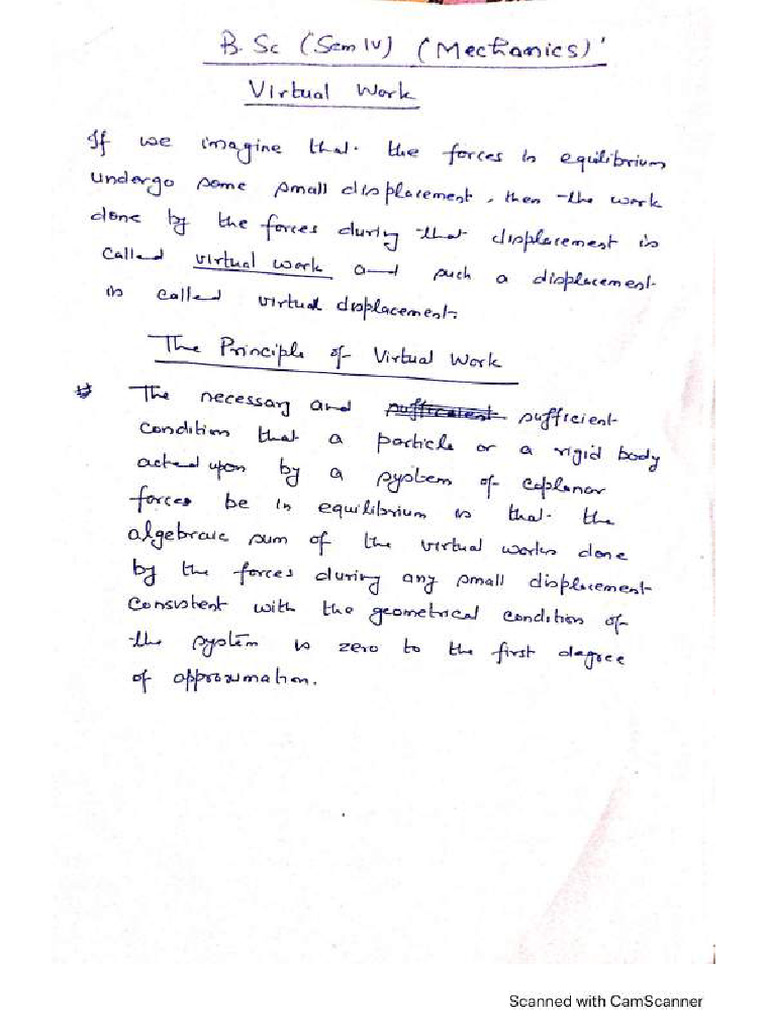 B.Sc (Sem IV) (Mechanics)'
Virtual Work
If we imagine that the forces in equilibrium
undergo some small displacement, then the work
done by the forces during that displacement is
called virtual work and such a displacement
is called virtual displacement.
The Principle of Virtual Work
# The necessary and sufficient
condition that a particle or a rigid body
acted upon by a system of coplanar
forces be in equilibrium is that the
algebraic sum of the virtual works done
by the forces during any small displacement
consistent with the geometrical condition of
the system is zero to the first degree
of approximation.
Scanned with CamScanner